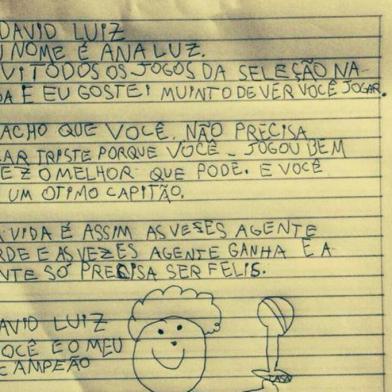 DAVID LUIZ
U NOME É ANA LUZ.
VI TODOS OS JOGOS DA SELEÇÃO NA-
DA E EU GOSTEI MUINTO DE VER VOCÊ JOGAR.
ACHO QUE VOCÊ. NÃO PRECISA
CAR TRISTE PORQUE VOCÊ - JOGOU BEM
FEZ O MELHOR QUE PODE. E VOCÊ
UM OTIMO CAPITÃO.
A VIDA É ASSIM AS VESES AGENTE
RDE E AS VEZES AGENTE GANHA E A
NTE SÓ PRECISA SER FELIS.
DAVID LUIZ
VOCÊ E O MEU
CAMPEÃO